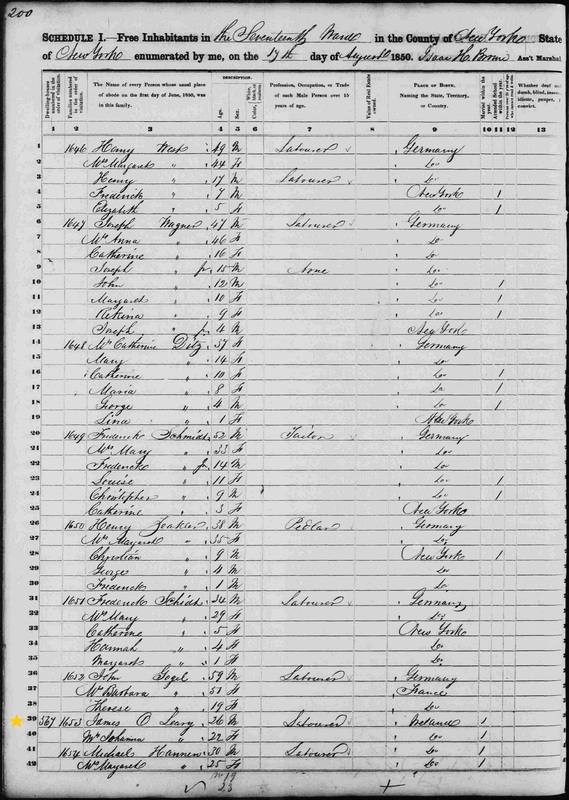 200
SCHEDULE I.—Free Inhabitants in the Seventeenth Ward in the County of New York State
of New York enumerated by me, on the 17th day of August 1850. Isaac H. Brown Ass't Marshal
DESCRIPTION.
The Name of every Person whose usual place of abode on the first day of June, 1850, was in this family.
Age. Sex.
Profession, Occupation, or Trade of each Male Person over 15 years of age.
Value of Real Estate owned.
PLACE OF BIRTH. Naming the State, Territory, or Country.
1 2 3 4 5 6 7 8 9 10 11 12 13
1 1646 Henry West 49 M Labourer Germany
2 Mrs Margaret " 44 F Do
3 Henry " 17 M Labourer Do
4 Frederick " 7 M New York 1
5 Elizabeth " 5 F Do 1
6 1647 Joseph Wagner 47 M Labourer Germany
7 Mrs Anna " 46 F Do
8 Catherine " 16 F Do
9 Joseph " Jr 15 M None Do
10 John " 12 M Do 1
11 Margaret " 10 F Do 1
12 " 9 F Do 1
13 Joseph " Jr 4 M New York
14 1648 Mrs Catherine Ditz 37 F Germany
15 Mary " 14 F Do
16 Catherine " 10 F Do 1
17 Maria " 8 F Do 1
18 George " 4 M Do 1
19 Lina " 1 F New York
20 1649 Frederick Schmidt 52 M Tailor Germany
21 Mrs Mary " 33 F Do
22 Frederick " Jr 14 M Do
23 Louise " 11 F Do 1
24 Christopher " 9 M Do 1
25 Catherine " 3 F New York
26 1650 Henry 38 M Pedlar Germany
27 Mrs Margaret " 35 F Do
28 Christian " 9 M New York 1
29 George " 4 M Do
30 Frederick " 1 M Do
31 1651 Frederick Schidt 34 M Labourer Germany
32 Mrs Mary " 29 F Do
33 Catherine " 5 F New York
34 Hannah " 4 F Do
35 Margaret " 1 F Do
36 1652 John Gogel 59 M Labourer Germany
37 Mrs Barbara " 51 F France
38 Therese " 19 F Do
39 567 1653 James O Leary 26 M Labourer Ireland 1
40 Mrs Johanna " 22 F Do 1
41 1654 Michael Hannen 30 M Labourer Do 1
42 Mrs Margaret " 25 F Do 1
19
23